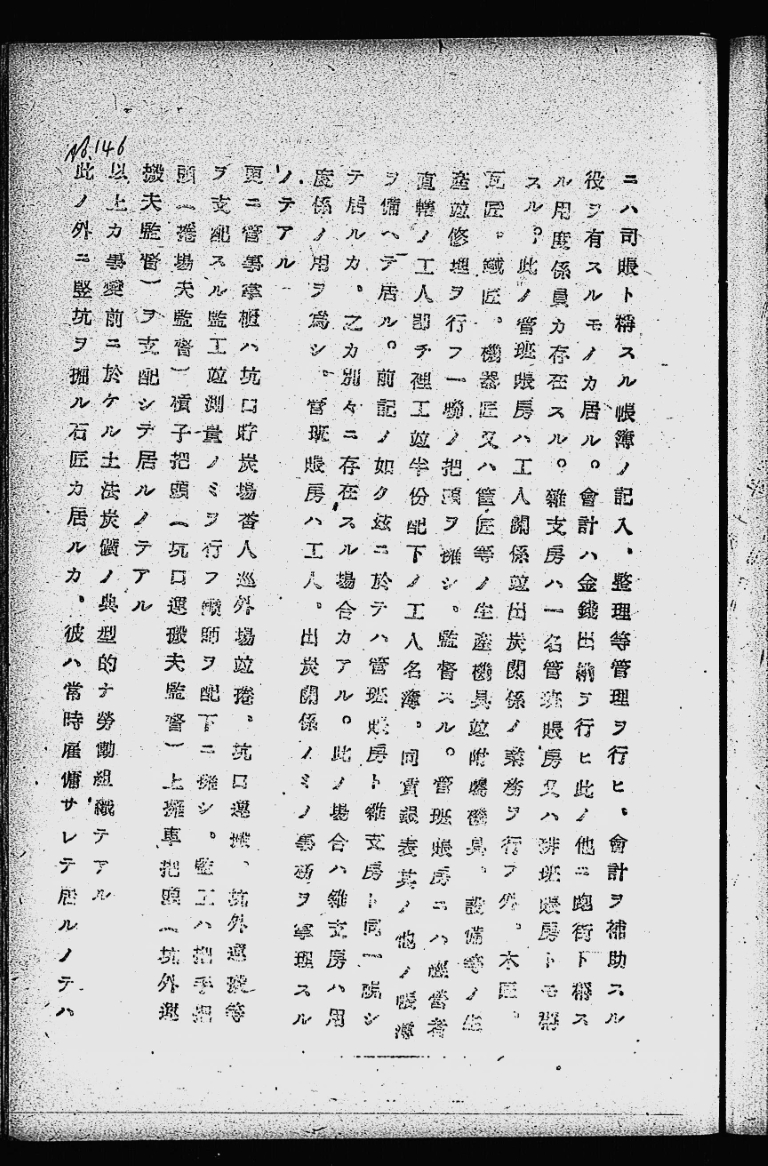 ニハ司賬ト稱スル帳簿ノ記入、整理等管理ヲ行ヒ、會計ヲ補助スル
役ヲ有スルモノカ居ル。會計ハ金錢出納ヲ行ヒ此ノ他ニ跑街ト稱ス
ル用度係員カ存在スル。雜支房ハ一名管班賬房又ハ排班賬房トモ稱
スル。此ノ管班賬房ハ工人關係竝出炭關係ノ業務ヲ行フ外、木匠、
瓦匠、鐵匠、機器匠又ハ筐匠等ノ生產機具竝附屬機具、設備等ノ生
產竝修理ヲ行フ一聯ノ把頭ヲ擁シ、監督スル。管班賬房ニハ經當者
直轄ノ工人即チ裡工竝半份配下ノ工人名簿、同賃銀表其ノ他ノ帳簿
ヲ備ヘテ居ル。前記ノ如ク玆ニ於テハ管班賬房ト雜支房ト同一視シ
テ居ルカ、之カ別々ニ存在スル場合カアル。此ノ場合ハ雜支房ハ用
度係ノ用ヲ爲シ、管班賬房ハ工人、出炭關係ノミノ事務ヲ掌理スル
ノテアル
更ニ管事掌櫃ハ坑口貯炭場看人巡外場竝捲、坑口運搬、坑外運搬等
ヲ支配スル監工竝測量ノミヲ行フ礦師ヲ配下ニ擁シ、監工ハ把手把
頭(捲場夫監督)磧子把頭(坑口運搬夫監督)上擁車把頭(坑外運
搬夫監督)ヲ支配シテ居ルノテアル
以上カ事變前ニ於ケル土法炭礦ノ典型的ナ勞働組織テアル
此ノ外ニ竪坑ヲ掘ル石匠カ居ルカ、彼ハ常時雇傭サレテ居ルノテハ
No.146